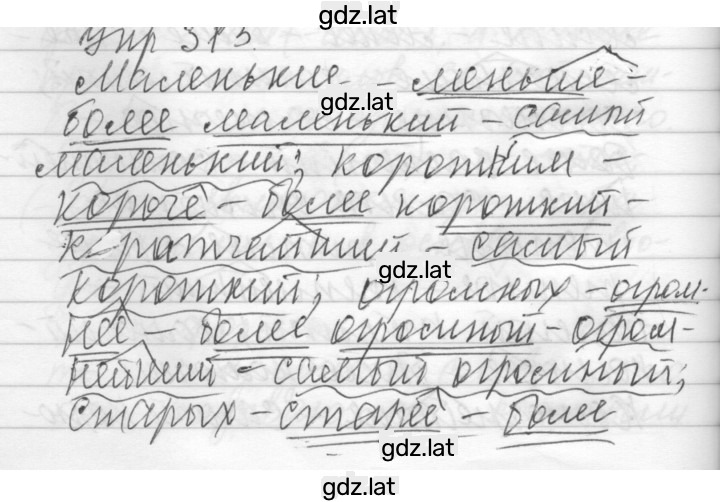 gdz.lat
Упр 313.
Маленькие - меньше -
gdz.lat
более маленький - самый
маленький; коротким -
gdz.lat
короче - более короткий -
кратчайший - самый
gdz.lat
короткий; огромных - огром-
нее - более огромный - огром-
gdz.lat
нейший - самый огромный;
старых - старее - более
gdz.lat
gdz.lat